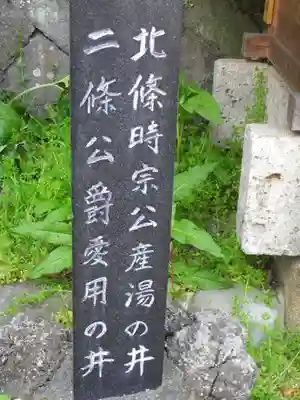 北條時宗公産湯の井
二條公爵愛用の井